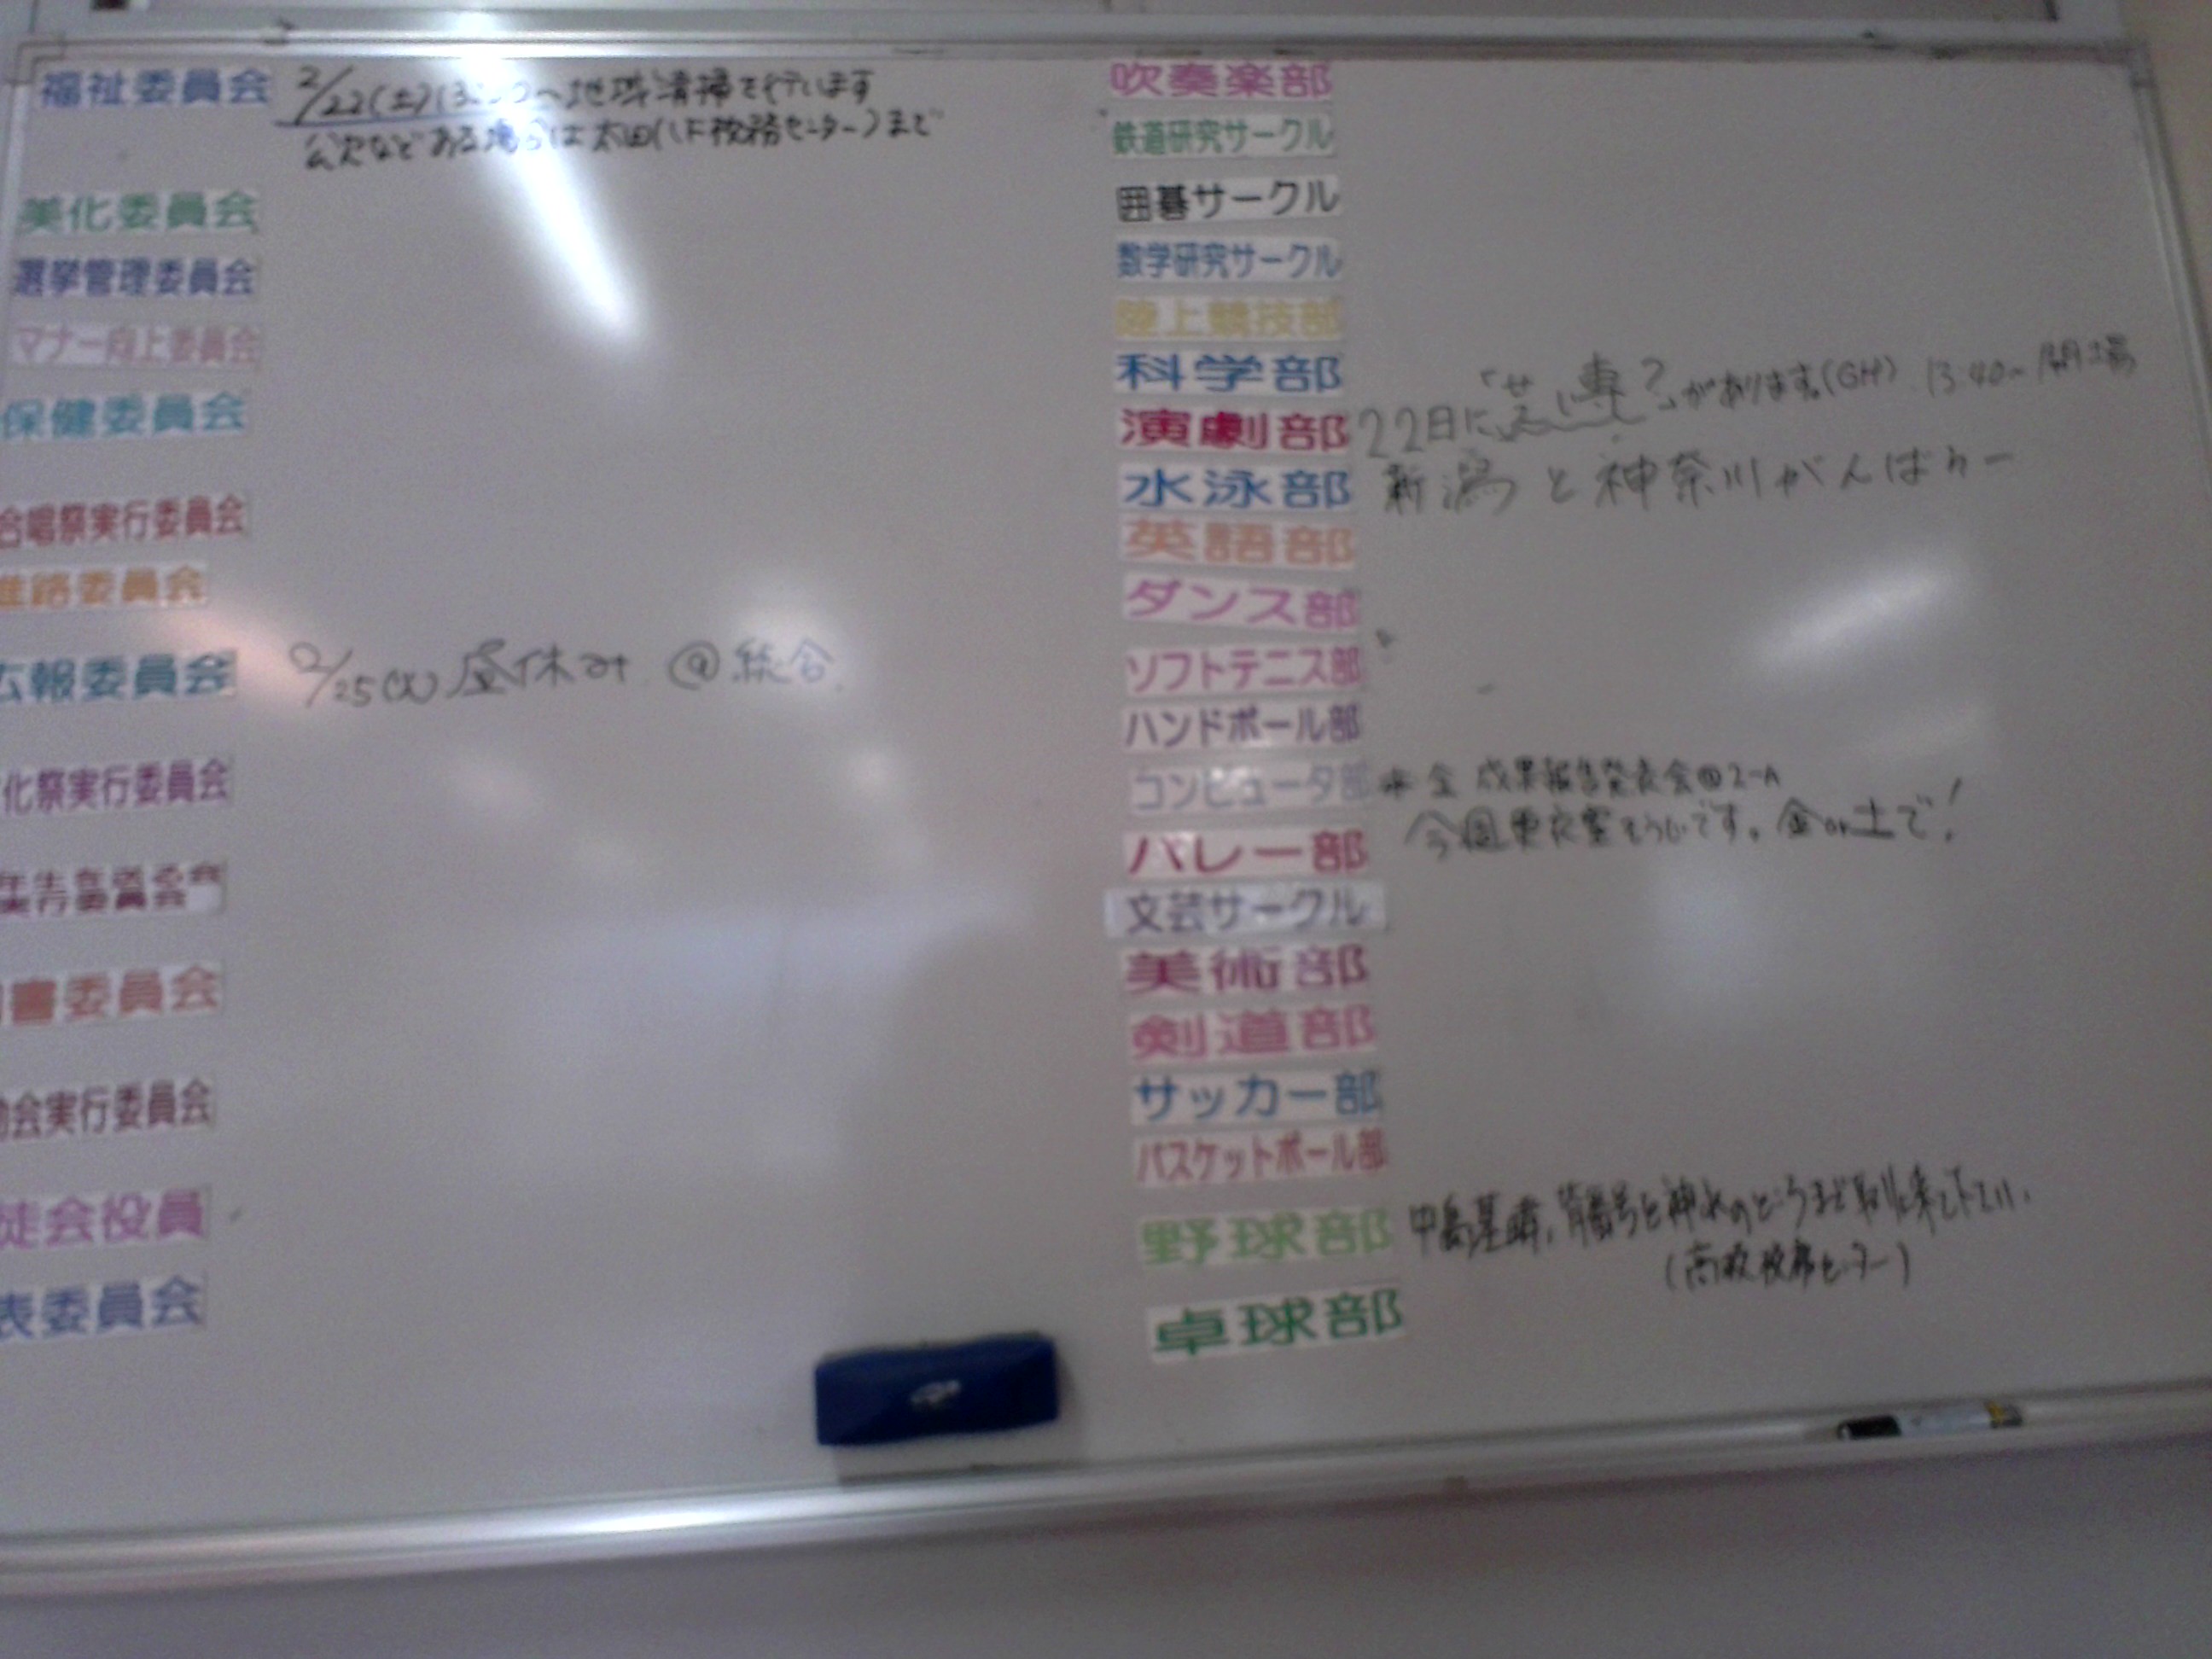 福祉委員会 2/22(土)13:00〜地域清掃を行います
公欠などある場合は太田(1F校務センター)まで
美化委員会
選挙管理委員会
マナー向上委員会
保健委員会
合唱祭実行委員会
進路委員会
広報委員会 2/25(火)昼休み @総合
化祭実行委員会
書委員会
会実行委員会
徒会役員
表委員会
吹奏楽部
鉄道研究サークル
囲碁サークル
数学研究サークル
陸上競技部
科学部
演劇部 22日に があります。(GH) 13:40〜開場
水泳部 新潟と神奈川がんばれー
英語部
ダンス部
ソフトテニス部
ハンドボール部
コンピュータ部 金 成果報告発表会@2-A
バレー部 今週更衣室そうじです。金or土で!
文芸サークル
美術部
剣道部
サッカー部
バスケットボール部
野球部 中島基晴、背番号を のところまで取りに来て下さい。
(高校校務センター)
卓球部